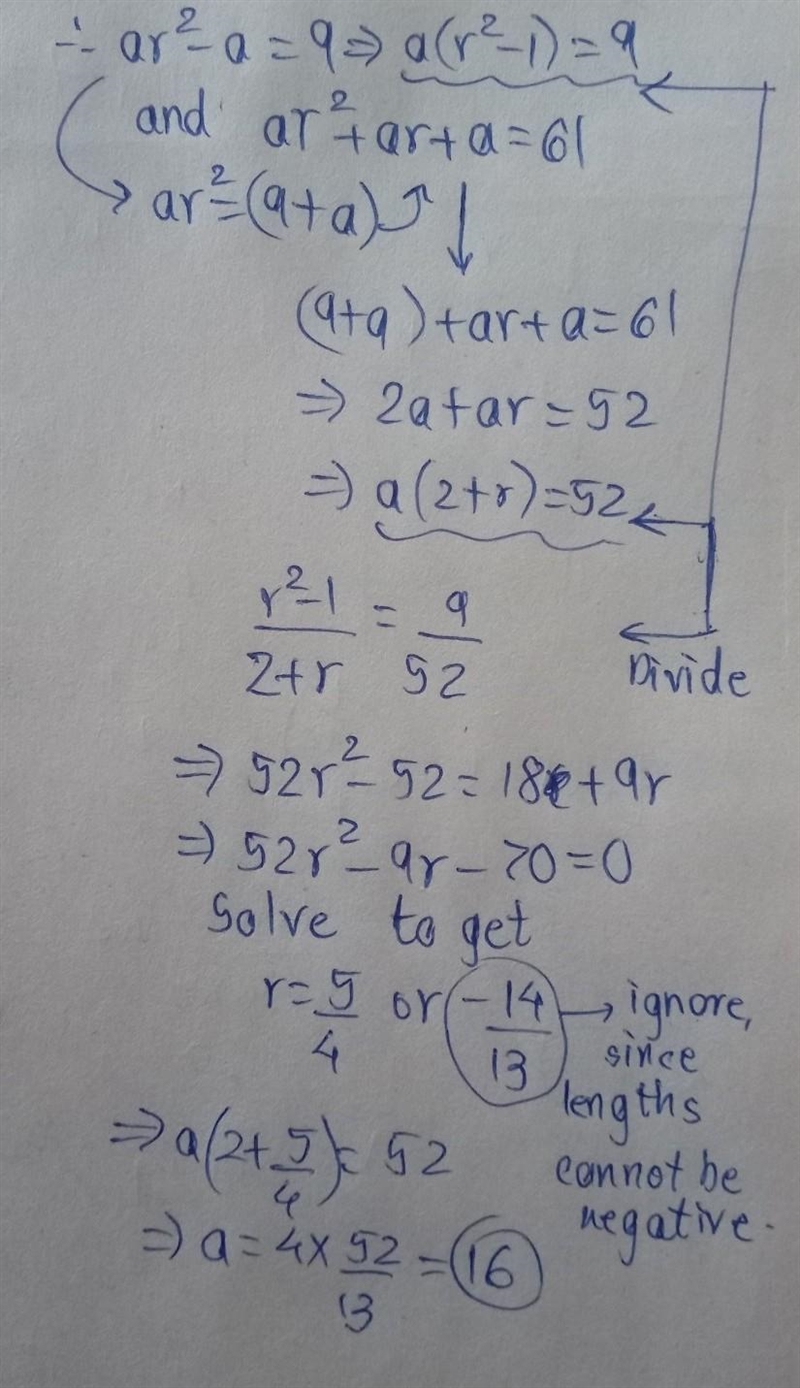 ∴ ar²-a=9⇒ a(r²-1)=9
and ar²+ar+a=61
→ ar²=(9+a)
(9+a)+ar+a=61
⇒ 2a+ar=52
⇒ a(2+r)=52
r²-1/2+r = 9/52
Divide
⇒ 52r²-52=18+9r
⇒ 52r²-9r-70=0
Solve to get
r=5/4 or -14/13 → ignore,
since
lengths
cannot be
negative.
⇒ a(2+5/4)=52
⇒ a=4×52/13=16